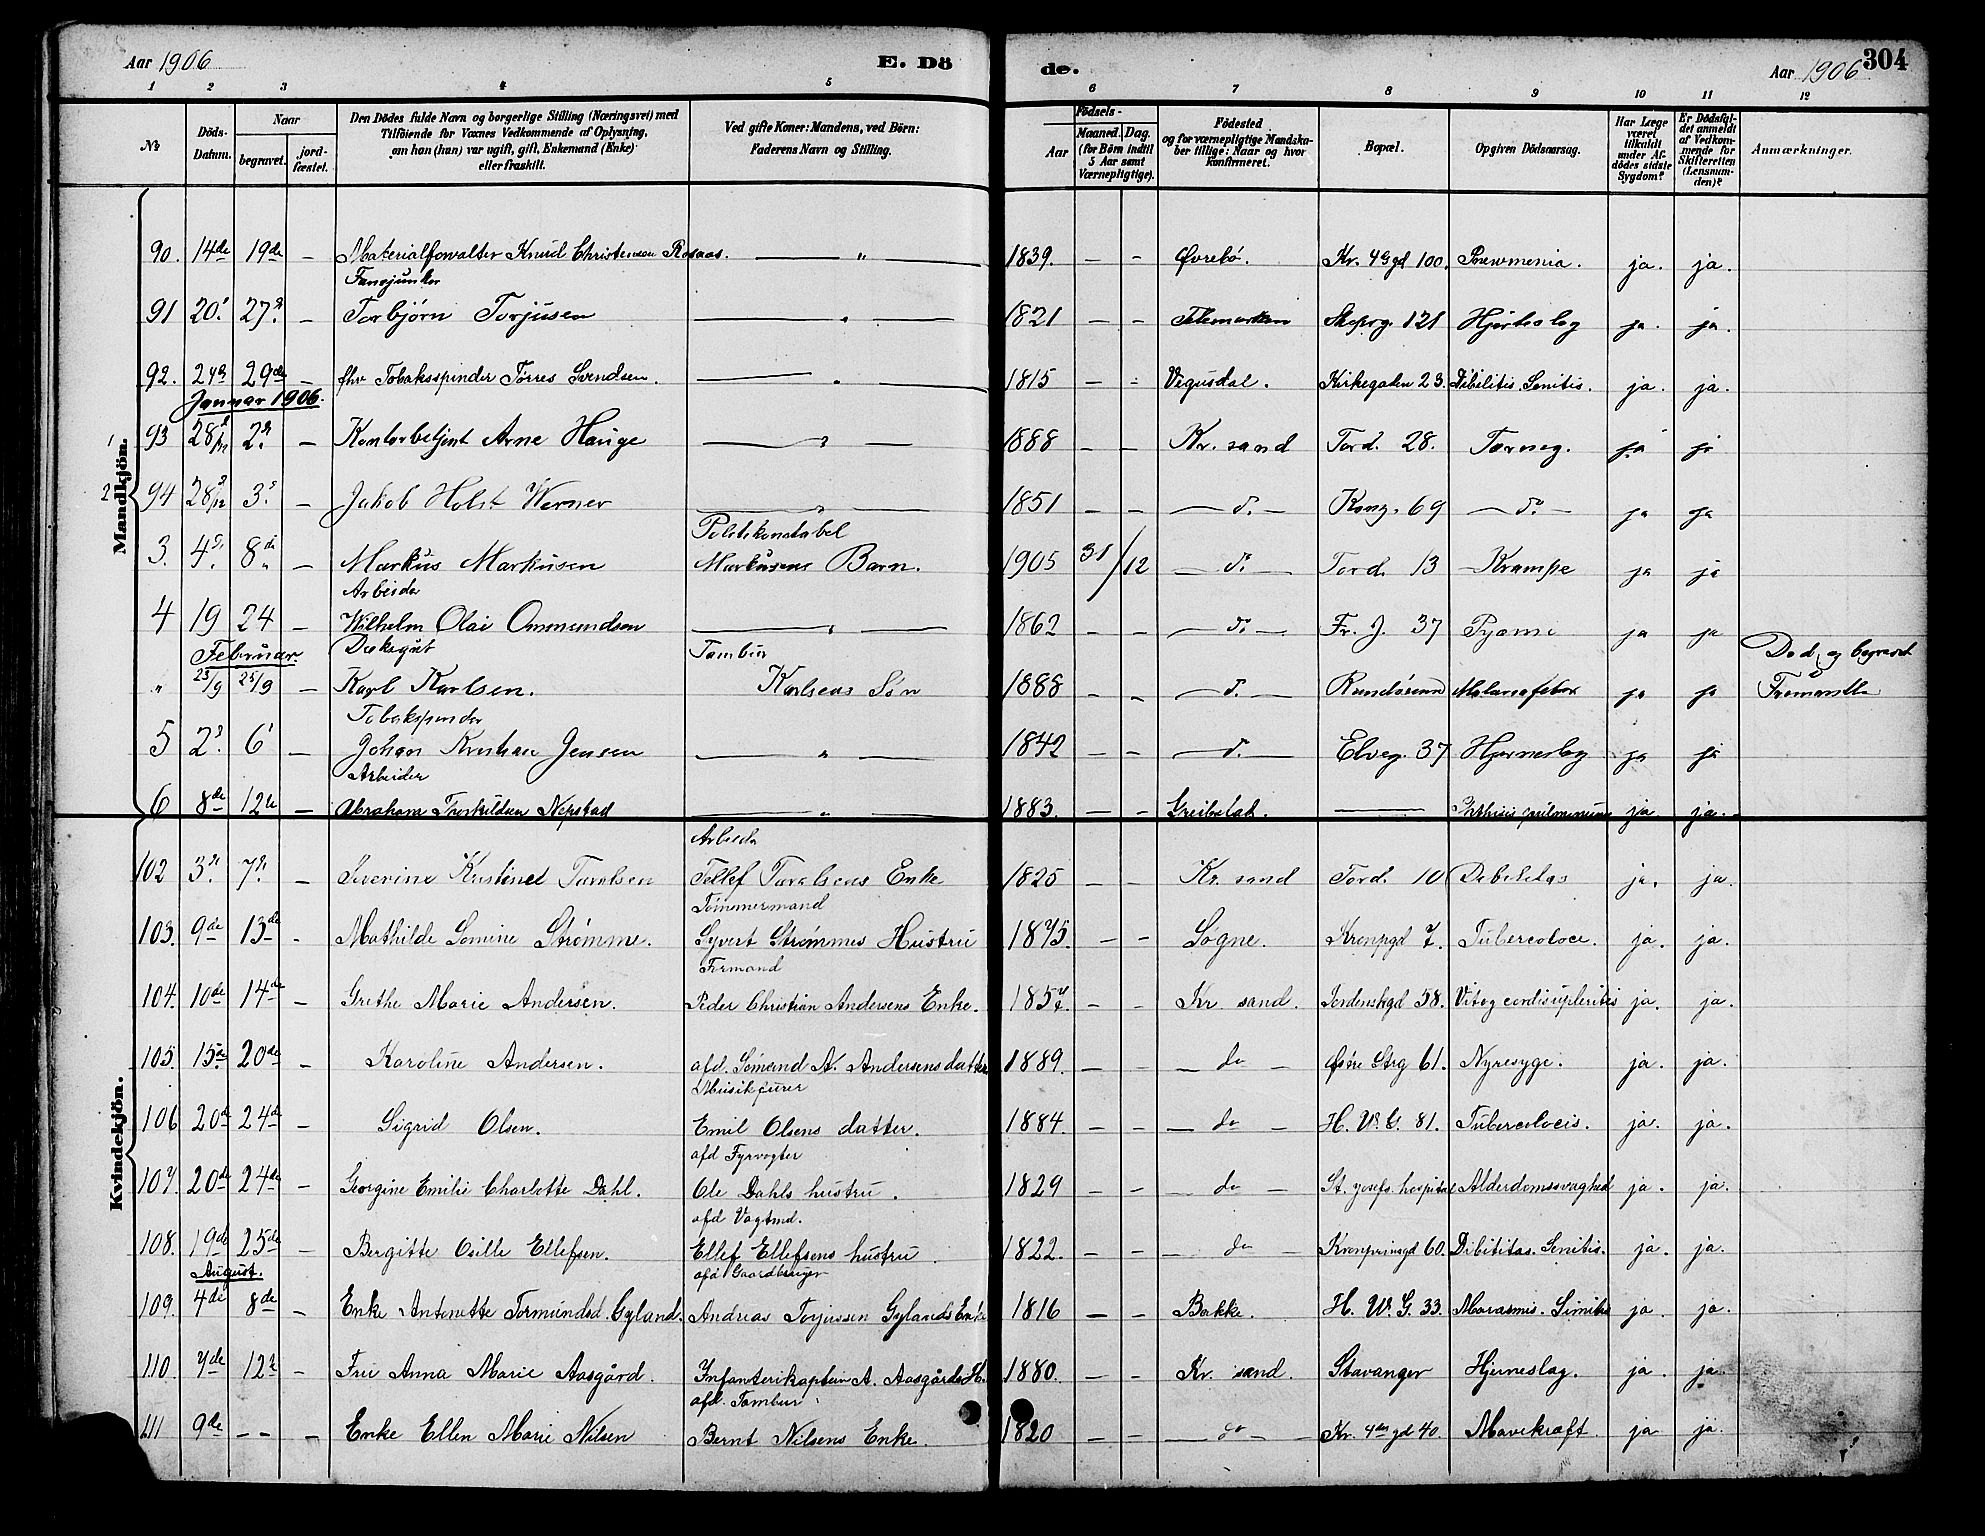 Aar 1906 E. Dö
de. Aar 1906 304
1 2 3 4 5 6 7 8 9 10 11 12
№ Döds-Datum. Naar begravet. jord-fæstet. Den Dödes fulde Navn og borgerlige Stilling (Næringsvei) med Tilföiende for Voxnes Vedkommende af Oplysning, om han (hun) var ugift, gift, Enkemand (Enke) eller fraskilt. Ved gifte Koner: Mandens, ved Börn: Faderens Navn og Stilling. Födsels- Aar Maaned. Dag. (for Börn indtil 5 Aar samt Værnepligtige). Födested og for værnepligtige Mandskaber tillige: Naar og hvor konfirmeret. Bopæl. Opgiven Dödsaarsag. Har Læge været tilkaldt under Afdödes sidste Sygdom? Er Dödsfaldet anmeldt af Vedkommende for Skifteretten (Lensmanden)? Anmærkninger.
Mandkjön.
90. 14de 19de – Materialforvalter Knud Christensen Rosaas. — „ — 1839. – – Øvrebø. Kr. 4s gd 100. Pnewmenia. ja. ja.
Fanejunker
91 20. 27. – Torbjørn Torjusen — „ — 1821 – – Telemarken 121 Hjerteslag ja. ja.
92. 24 29de – fhv Tobaksspinder Tørres Svendsen. — „ — 1815 – – Vegusdal. Kirkegaten 23. Debilitis Senitis. ja. ja.
Januar 1906.
1 93 28/12 2. – Kontorbetjent Arne Hauge — „ — 1888 – – Kr. sand Tord. 28. Tæring. ja ja
2 94 28/12 3. – Jakob Holst Werner — „ — 1851 – – — do — Kong. 69 — do — ja ja
Politikonstabel
3. 4. 8de – Markus Markusen Markusens Barn. 1905 31/12 — do — Tord. 13 Krampe ja ja
Arbeider
4 19 24 – Wilhelm Olai Ommundsen — „ — 1862 – – — do — Fr. J. 37 Pyæmi ja ja
Februar. Dæksgut Tambur Død og begravet
„ 23/9 25/9 – Karl Karlsen. Karlsens Søn 1888 – – — do — Malariafeber ja ja Fremantle
Tobakspinder
5 2. 6 – Johan Kristian Jensen — „ — 1842 – – — do — Elveg. 37 Hjerneslag ja ja
Arbeider
6 8de 12te – Abraham Torkildsen Nepstad — „ — 1883. – – Greibstad. — Phthisis pulmonum ja ja.
Kvindekjön.
Arbeider
102 3. 7. – Severine Kristine Taralsen Tellef Taralsens Enke 1825 – – Kr. sand Tord. 10 Debilitas ja. ja.
Tömmermand
103. 9de 13de – Mathilde Somine Strømme. Syvert Strømmes Hustru 1875. – – Søgne. Kronpgd 7. Tubercoloce. ja. ja.
Formand
104. 10de 14de – Grethe Marie Andersen. Peder Christian Andersens Enke. 1857. – – Kr. sand. Tordenskgd 58. ja. ja.
105. 15de 20de – Karoline Andersen. afd. Sømand N. Andersens datter 1889. – – — do — Østre Strg 61. Nyresyge. ja. ja.
Musikfurer
106 20de 24de – Sigrid Olsen. Emil Olsens datter. 1884. – – — do — H. W. G. 81. Tubercolocis. ja. ja.
afd Fyrvogter
107. 20de 24de – Georgine Emilie Charlotte Dahl. Ole Dahls hustru. 1829 – – — do — St. Josefs hospital Alderdomssvaghed ja. ja.
afd Vagtmd.
108. 19de 25de – Bergitte Osille Ellefsen. Ellef Ellefsens hustru. 1822. – – — do — Kronprinsgd 60. Dibititas. Senitis. ja. ja.
August. afd Gaardbruger
109. 4de 8de – Enke Antonette Tormundsd. Gyland. Andreas Torjussen Gylands Enke 1816 – – Bakke. H. W. G. 33. Marasmis. Senitis ja. ja.
110. 7de 12te – Fru Anna Marie Aasgård. Infanterikaptein A. Aasgårds H. 1880. – – Kr. sand. Stavanger Hjerneslag. ja. ja.
afd. Tambur
111 9de – – – Enke Ellen Marie Nilsen Bernt Nilsens Enke. 1820 – – — do — Kr. 4des gd 40. Mavekræft ja ja.